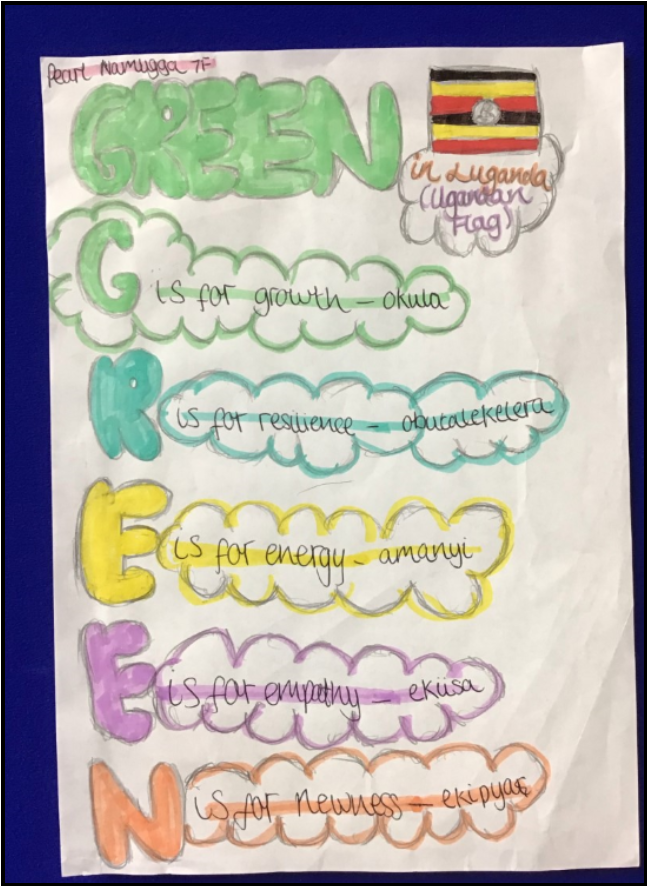 Pearl Namugga 7F
GREEN
in Luganda
(Ugandan
Flag)
G is for growth – okula
R is for resilience – obutalekelera
E is for energy – amanyi
E is for empathy – ekiisa
N is for newness –